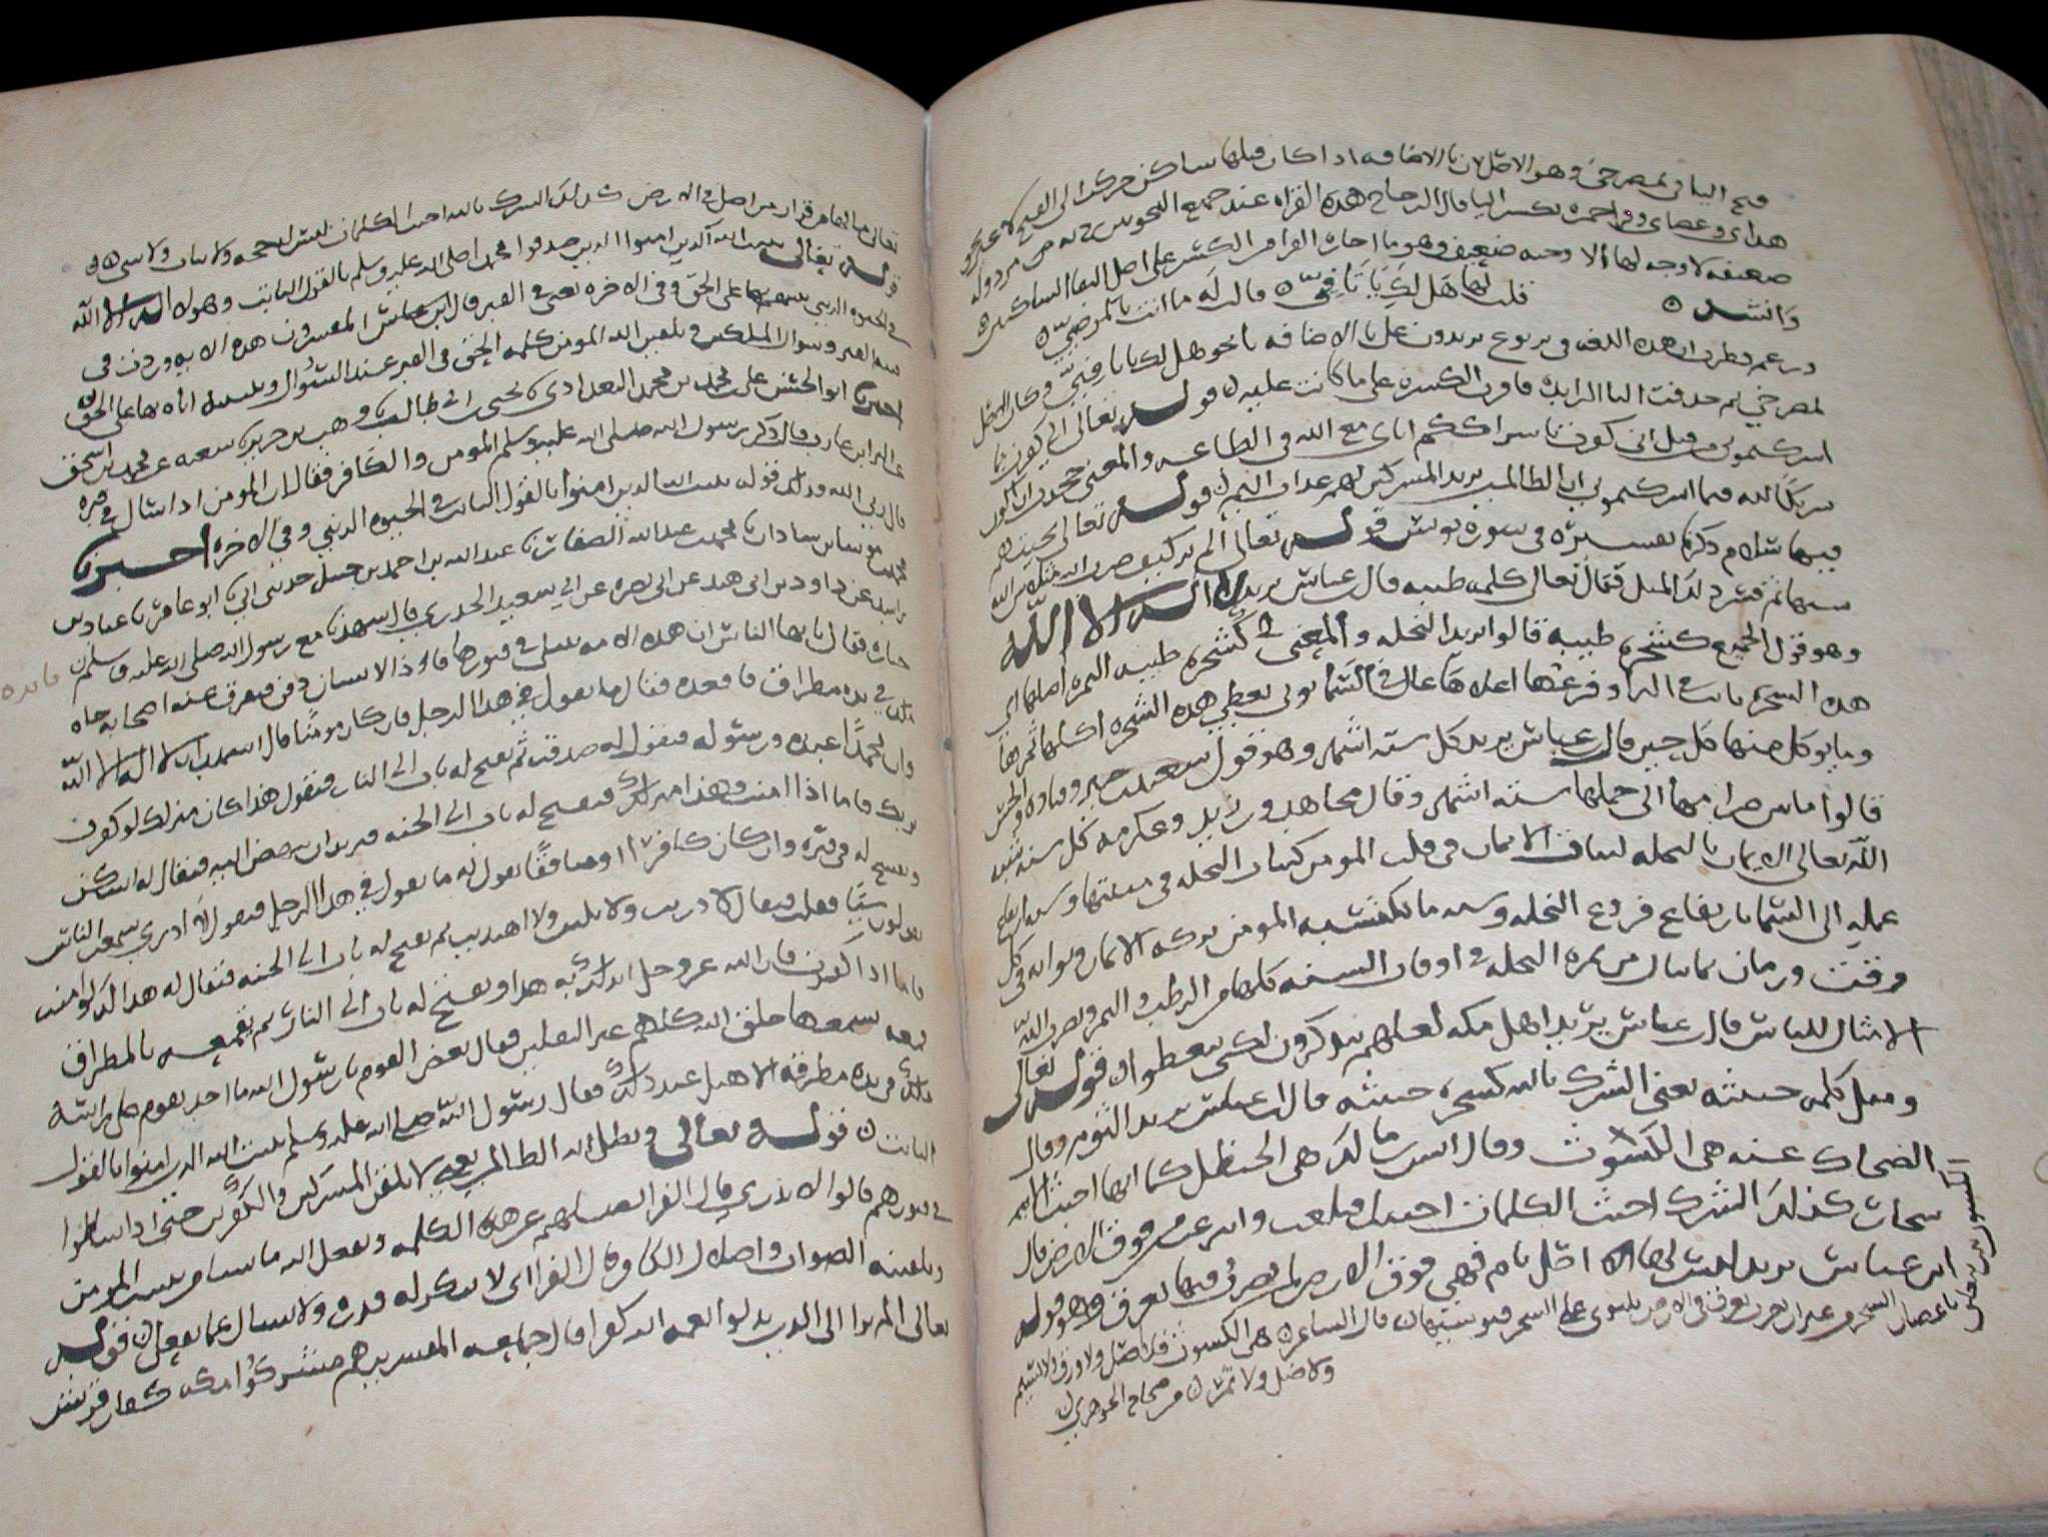 فتح اليا في بمصرخي وهو الاصل لان يا الاضافه اذا كان قبلها ساكن حركت الى الفتح
هداي وعصاي وقرا حمزه بكسر اليا قال الزجاج هذه القراه عند جميع النحويين
ضعيفه لا وجه لها الا وجيه ضعيف وهو ما اجازه الفرا من الكسر على اصل التقا الساكنين
وانشد قلت لها هل لك يا تا فيّ قالت له ما انت بالمرضيّ
وزعم قطرب ان هذه اللغه في يربوع يزيدون على يا الاضافه يا نحو هل لك يا تا فيّ وكان الاصل
بمصرخي ثم حذفت اليا الزايده واقرت الكسره على ما كانت عليه قوله تعالى اني كفرت بما
اشركتموني من قبل اني كفرت باشراككم اياي مع الله في الطاعه والمعنى جحدت ان اكون
شريكا لله فيما اشركتموني ان الظالمين يريد المشركين لهم عذاب اليم قوله تعالى تحيتهم
فيها سلام ذكرنا تفسيره في سوره يونس قوله تعالى الم تر كيف ضرب الله مثلا بين الله
شبها ثم فسر ذلك المثل فقال تعالى كلمه طيبه قال عباس يريد لا اله الا الله
وهو قول الجميع كشجره طيبه قالوا يريد النخله والمعنى كشجره طيبه الثمره اصلها اي
هذه الشجره ثابت في الارض وفرعها اعلاها عال في السما توتي تعطي هذه الشجره اكلها ثمرها
وما يوكل منها كل حين قال عباس يريد كل سته اشهر وهو قول سعيد جبير وقتاده والحسن
قالوا ما بين صرامها الى حملها سته اشهر وقال مجاهد وزيد وعكرمه كل سنه شبه
الله تعالى الايمان بالنخله لثبات الايمان في قلب المومن كثبات النخله في منبتها وشبه ارتفاع
عمله الى السما بارتفاع فروع النخله وشبه ما يكتسبه المومن بركه الايمان وثوابه في كل
وقت وزمان بما ينال من ثمره النخله في اوقات السنه كلها من الرطب والتمر ويضرب الله
الامثال للناس قال عباس يريد اهل مكه لعلهم يتذكرون لكي يتعظوا قوله تعالى
ومثل كلمه خبيثه يعني الشرك بالله كشجره خبيثه قال ابن عباس يريد الثوم وقال
الضحاك عنه هي الكشوث وقال انس بن مالك هي الحنظل كما انها اخبث الاشجار
كذلك الشرك اخبث الكلمات اجتثت اقتلعت وانتزعت من فوق الارض قال
ابن عباس يريد ليس لها اصل تام فهي فوق الارض لم يضرب فيها بعرق وهو قوله
الكشوث نبت يتعلق
باغصان الشجر من غير ان يضرب بعرق في الارض قال الشاعر هي الكشوث فلا اصل ولا ورق ولا نسيم
ولا ظل ولا ثمر من صحاح الجوهري
تعالى ما لها من قرار من اصل في الارض كذلك الشرك بالله اخبث الكلمات ليس له حجه ولا ثبات ولا شي
قوله تعالى يثبت الله الذين امنوا الذين صدقوا محمدا صلى الله عليه وسلم بالقول الثابت وهو لا اله الا الله
في الحيوه الدنيا يثبتهم بها على الحق وفي الاخره يعني في القبر قال ابن عباس المفسرون هذه الايه وردت في
فتنه القبر وسوال الملكين وتلقين الله المومن كلمه الحق في القبر عند السؤال وتثبيته اياه بها على الحق
اخبرنا ابو الحسين علي بن محمد بن محمد البغدادي يحيى ابي طالب وهب بن جرير شعبه
عن البرا بن عازب قال ذكر رسول الله صلى الله عليه وسلم المومن والكافر فقال ان المومن اذا سئل في قبره
قال ربي الله وذلك قوله يثبت الله الذين امنوا بالقول الثابت في الحيوه الدنيا وفي الاخره اخبرنا
عبد الله الصفار عبد الله بن احمد بن حنبل حدثني ابي ابو عامر عباد بن
راشد عن داود بن ابي هند عن ابي نضره عن ابي سعيد الخدري قال شهدنا مع رسول الله صلى الله عليه وسلم
فايده
جنازه فقال يايها الناس ان هذه الامه تبتلى في قبورها فاذا الانسان دفن وتفرق عنه اصحابه جاه
ملك في يده مطراق فاقعده فقال ما تقول في هذا الرجل فان كان مومنا قال اشهد ان لا اله الا الله
وان محمدا عبده ورسوله فيقول له صدقت ثم يفتح له باب الى النار فيقول هذا كان منزلك لو كفرت
بربك فاما اذا امنت فهذا منزلك فيفتح له باب الى الجنه فيريد ان ينهض اليه فيقال له اسكن
ويفسح له في قبره وان كان كافرا او منافقا يقول له ما تقول في هذا الرجل فيقول لا ادري سمعت الناس
يقولون شيا فقلت فيقال لا دريت ولا تليت ولا اهتديت ثم يفتح له باب الى الجنه فيقال له هذا لك لو امنت
فاما اذا كفرت فان الله عز وجل ابدلك به هذا ويفتح له باب الى النار ثم يقمعه بالمطراق
قمعه يسمعها خلق الله كلهم غير الثقلين فقال بعض القوم يا رسول الله ما احد يقوم على راسه
ملك في يده مطرقه الا هيل عند ذلك فقال رسول الله صلى الله عليه وسلم يثبت الله الذين امنوا بالقول
الثابت قوله تعالى ويضل الله الظالمين يعني لا يلقن المشركين والكافرين حتى اذا سئلوا
في قبورهم قالوا لا ندري قال الفرا يضلهم عن هذه الكلمه ويفعل الله ما يشا من تثبيت المومن
وتلقينه الصواب واضلال الكافر قال الفرا اي لا تنكر له قدره ولا يسال عما يفعل قوله
تعالى الم تر الى الذين بدلوا نعمه الله كفرا قال جماعه المفسرين هم مشركوا مكه كفار قريش